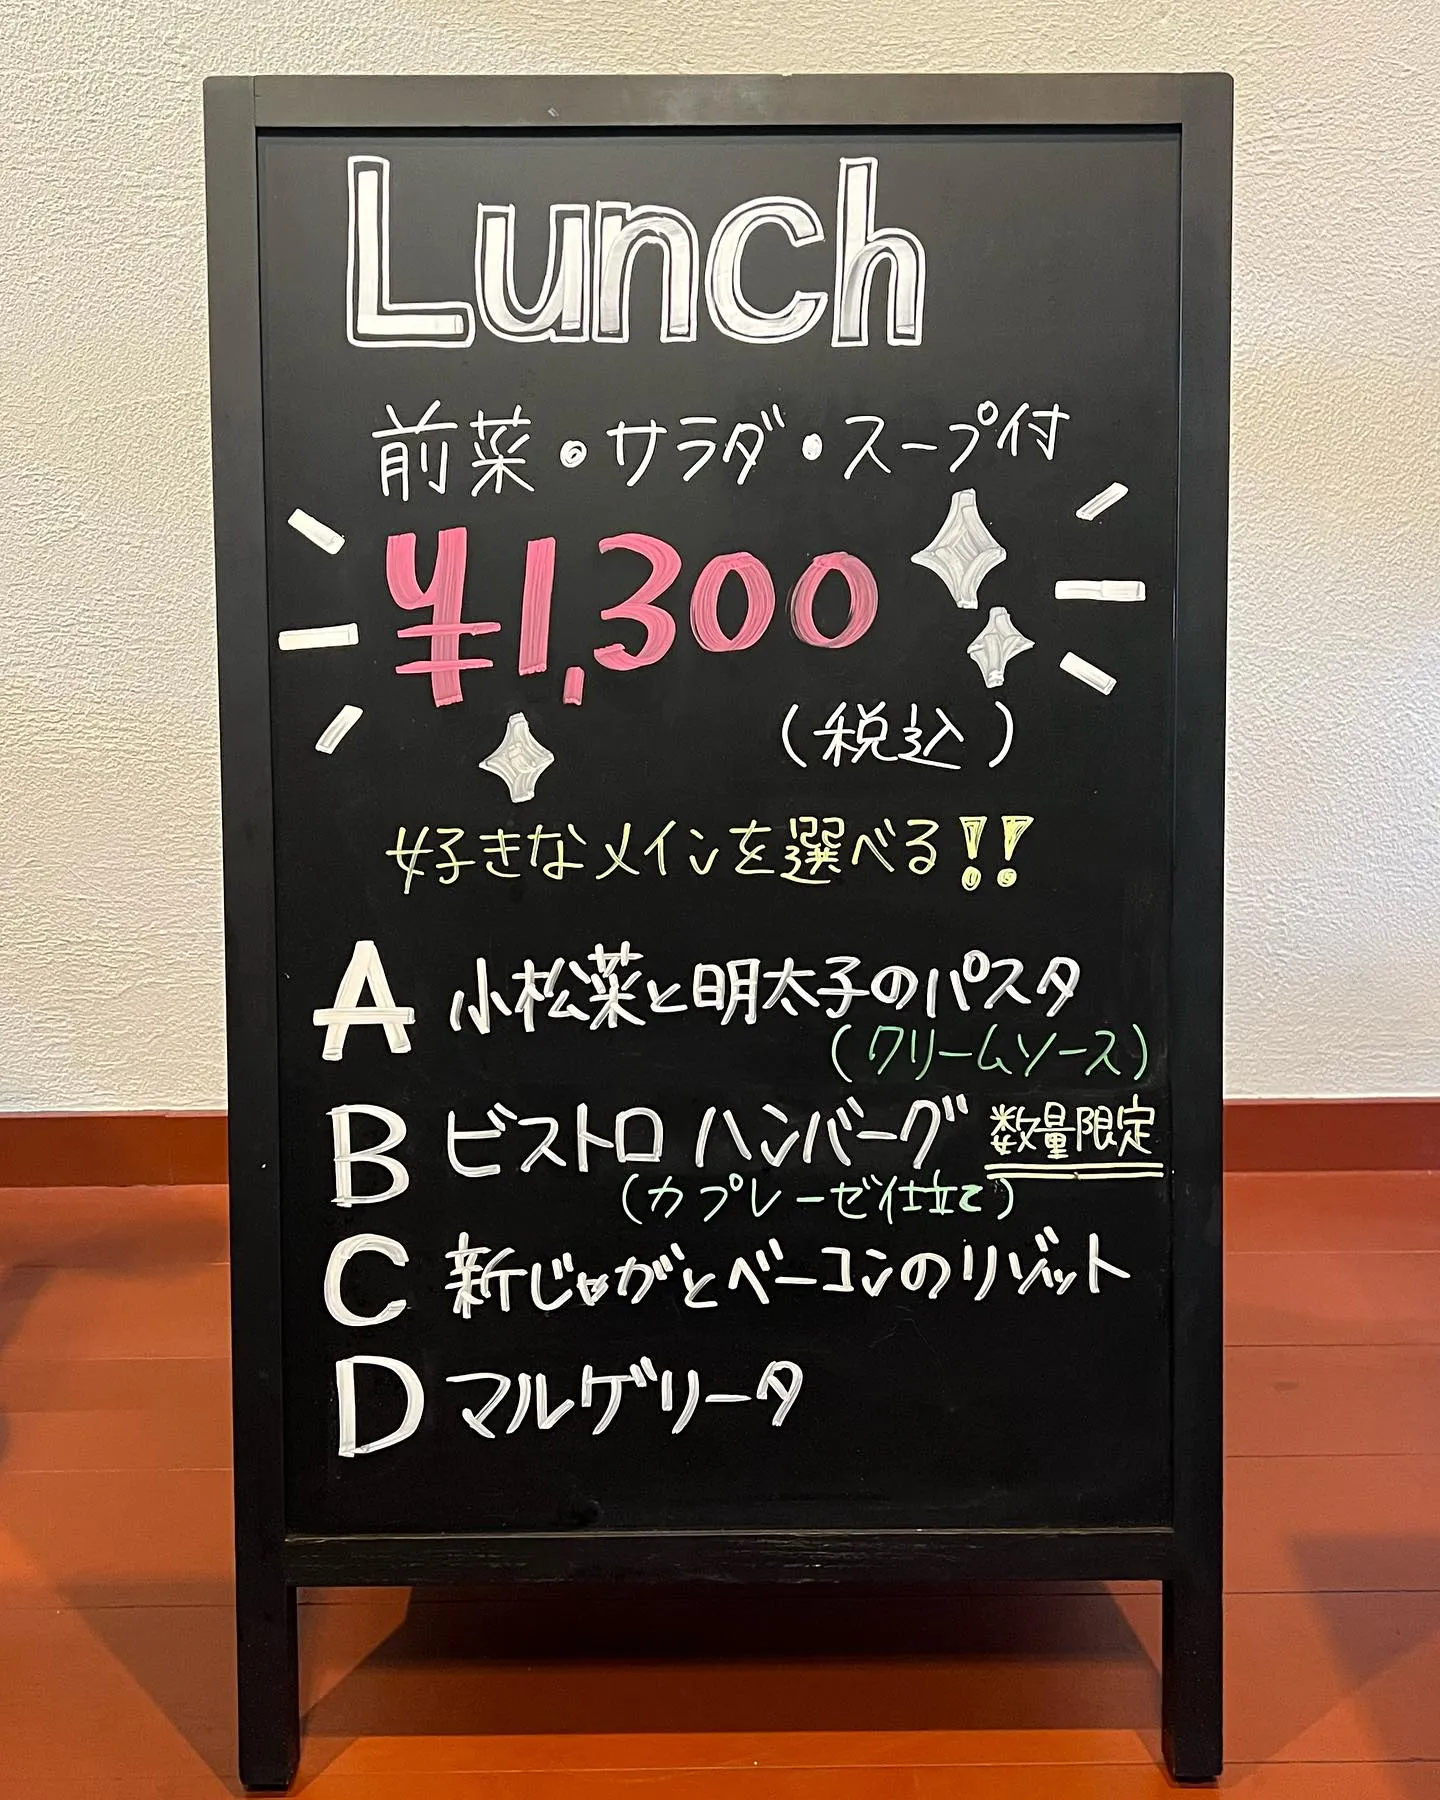 Lunch
前菜・サラダ・スープ付
¥1,300
(税込)
好きなメインを選べる!!
A 小松菜と明太子のパスタ
(クリームソース)
B ビストロ ハンバーグ 数量限定
(カプレーゼ仕立て)
C 新じゃがとベーコンのリゾット
D マルゲリータ